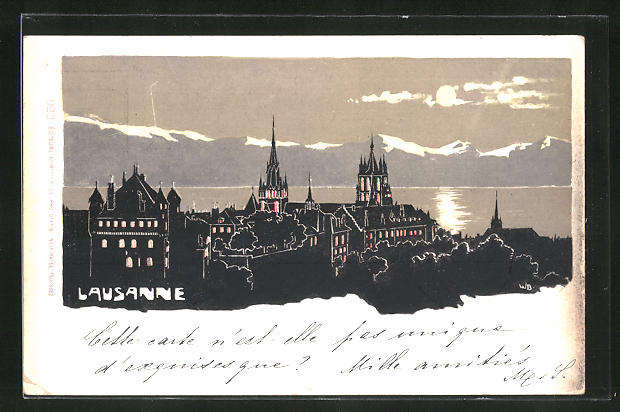 LAUSANNE
WB.
Cette carte n'est-elle pas unique
d'exquises que? Mille amitiés